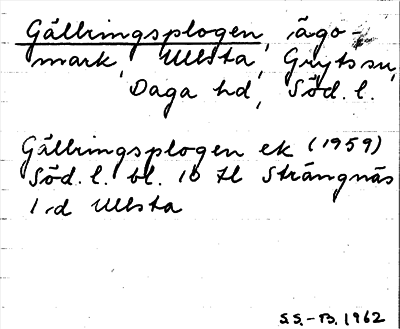 Gällringsplogen, ägo-
mark, Ullsta, Gryts sn,
Daga hd, Söd. l.
Gällringsplogen ek (1959)
Söd. l. bl. 10 tl Strängnäs
1:d Ullsta
S.S.-B. 1962